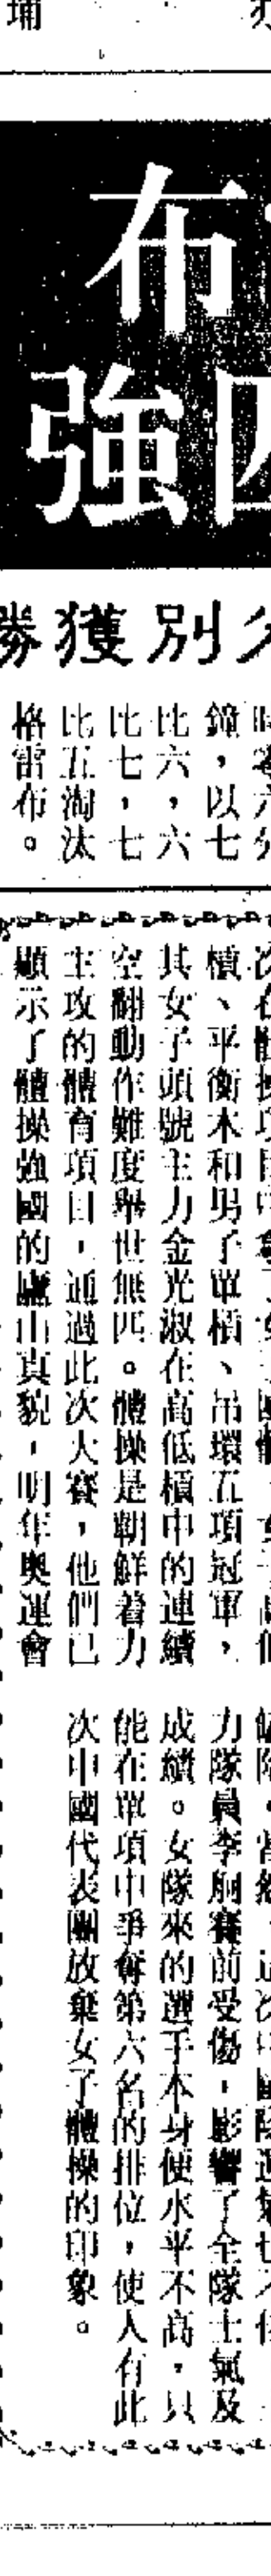 埔
布
強四
勝獲別
鐘，以七
比六，六
比七，七
比五淘汰
格雷布。
槓、平衡木和男子單槓、吊環五項冠軍，
其女子頭號主力金光淑在高低槓中的連續
空翻動作難度舉世無匹。體操是朝鮮着力
主攻的體育項目，通過此次大賽，他們已
顯示了體操強國的廬山真貌，明年奧運會
力隊員李朋賽前受傷，影響了全隊士氣及
成績。女隊來的選手本身便水平不高，只
能在單項中爭奪第六名的排位，使人有此
次中國代表團放棄女子體操的印象。